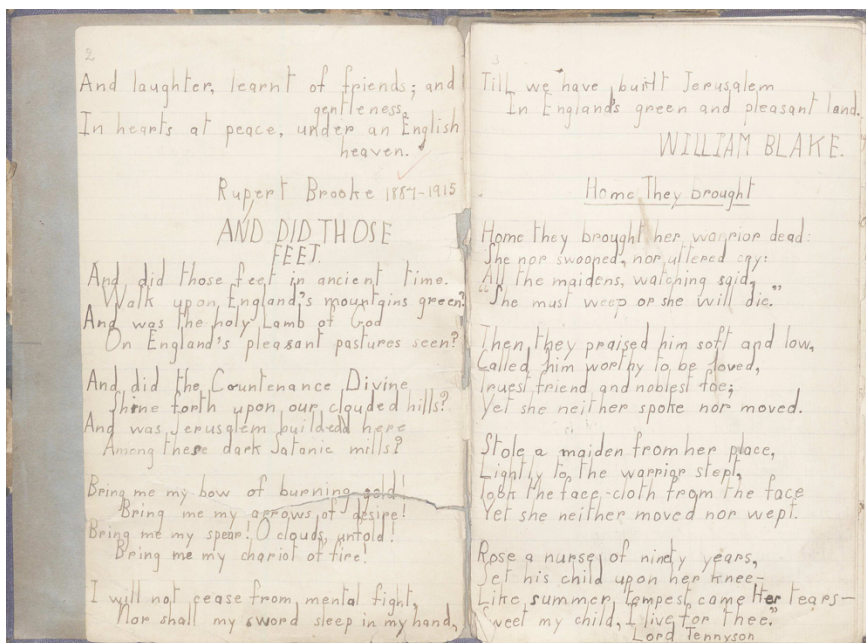 2
And laughter, learnt of friends; and
gentleness,
In hearts at peace, under an English
heaven.
Rupert Brooke 1887-1915
AND DID THOSE
FEET.
And did those feet in ancient time.
Walk upon England's mountains green?
And was the holy Lamb of God
On England's pleasant pastures seen?
And did the Countenance Divine
Shine forth upon our clouded hills?
And was Jerusalem builded here
Among these dark Satanic mills?
Bring me my bow of burning gold!
Bring me my arrows of desire!
Bring me my spear! O clouds, untold!
Bring me my chariot of fire!
I will not cease from mental fight,
Nor shall my sword sleep in my hand,
3
Till we have built Jerusalem
In England's green and pleasant land.
WILLIAM BLAKE.
Home They brought
Home they brought her warrior dead:
She nor swooped, nor uttered cry:
All the maidens, watching said,
"She must weep or she will die."
Then they praised him soft and low,
Called him worthy to be loved,
Truest friend and noblest foe;
Yet she neither spoke nor moved.
Stole a maiden from her place,
Lightly to the warrior stept,
Took the face-cloth from the face
Yet she neither moved nor wept.
Rose a nurse of ninety years,
Set his child upon her knee-
Like summer tempest came Her tears-
"Sweet my child, I live for thee."
Lord Tennyson